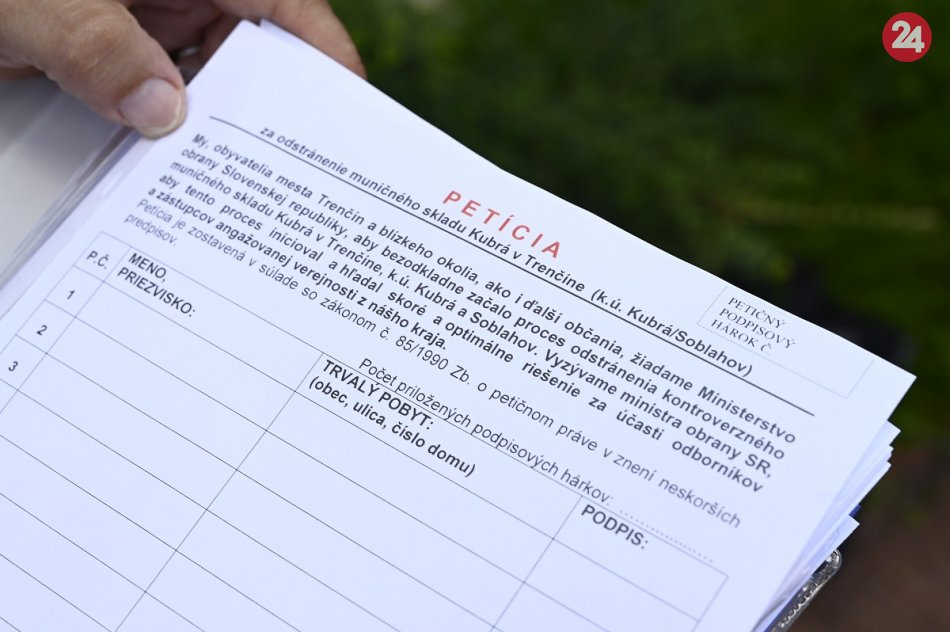 24
PETÍCIA
za odstránenie muničného skladu Kubrá v Trenčíne (k.ú. Kubrá/Soblahov)
PETIČNÝ
PODPISOVÝ
HÁROK Č.
My, obyvatelia mesta Trenčín a blízkeho okolia, ako i ďalší občania, žiadame Ministerstvo
obrany Slovenskej republiky, aby bezodkladne začalo proces odstránenia kontroverzného
muničného skladu Kubrá v Trenčíne, k.ú. Kubrá a Soblahov. Vyzývame ministra obrany SR,
aby tento proces inicioval a hľadal skoré a optimálne riešenie za účasti odborníkov
a zástupcov angažovanej verejnosti z nášho kraja.
Petícia je zostavená v súlade so zákonom č. 85/1990 Zb. o petičnom práve v znení neskorších
predpisov.
Počet priložených podpisových hárkov: ...............
P.Č.
MENO
PRIEZVISKO:
TRVALÝ POBYT:
(obec, ulica, číslo domu)
PODPIS:
1
2
3